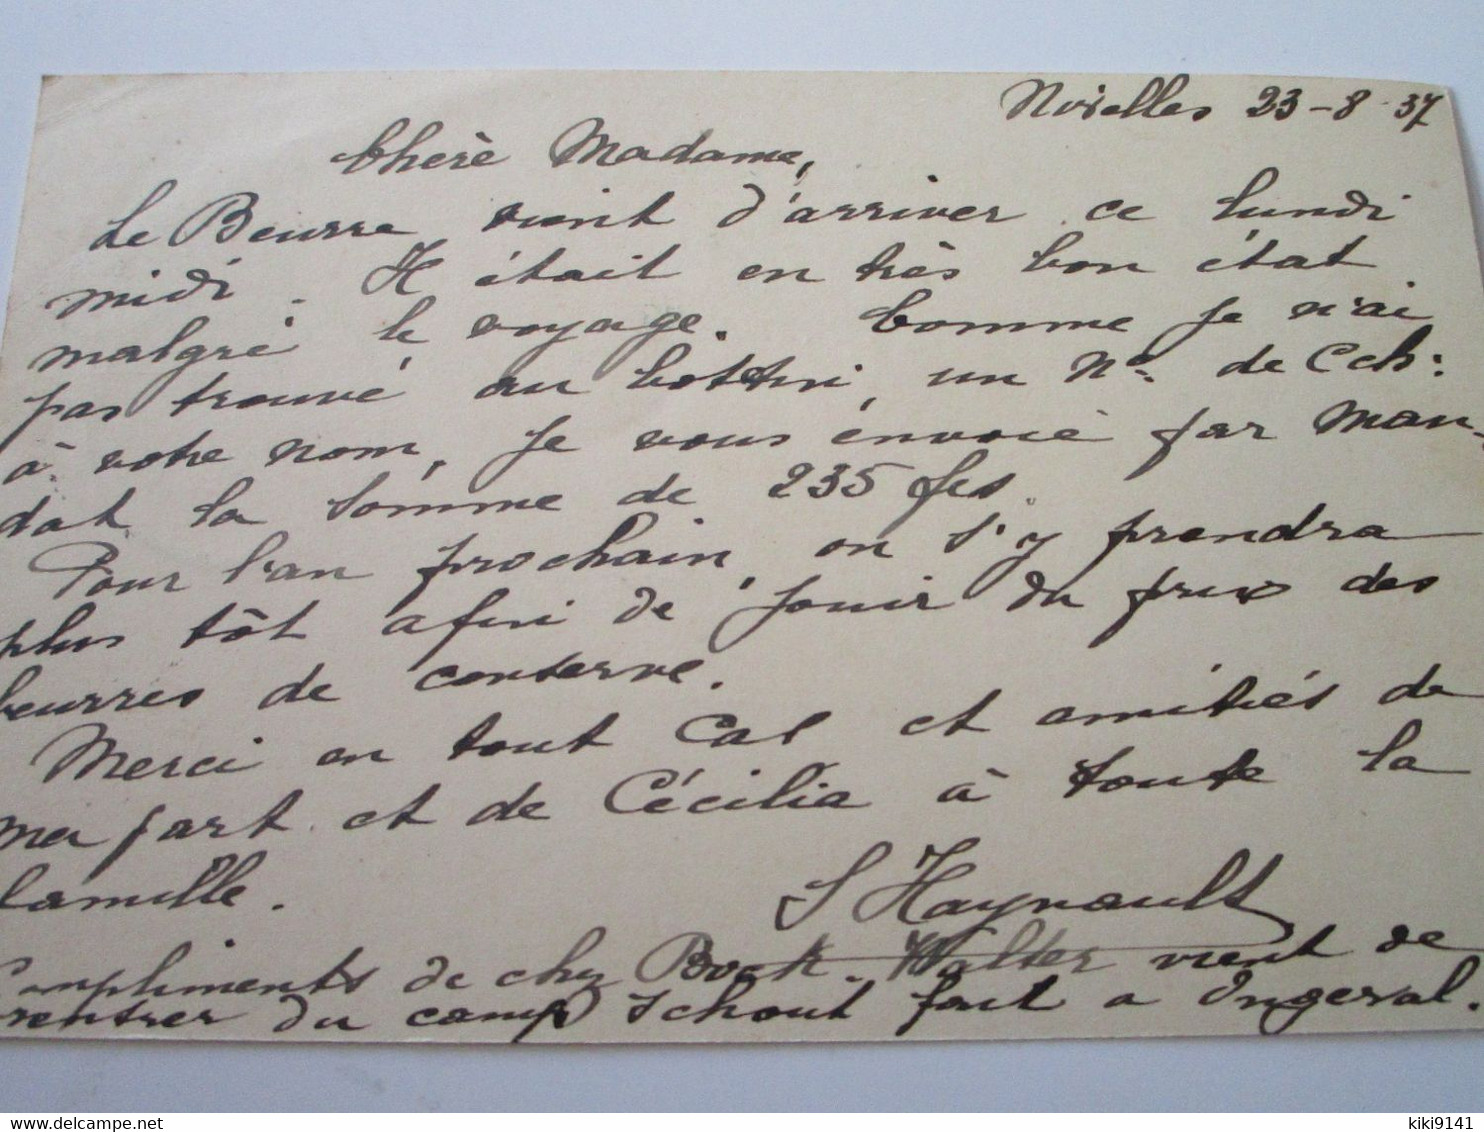 Nivelles 23-8-37
Chère Madame,
Le Beurre vient d'arriver ce lundi
midi. Il était en très bon état
malgré le voyage. Comme je n'ai
pas trouvé au bottin, un N° de Cch:
à votre nom, je vous envoie par Man-
dat la somme de 235 frs.
Pour l'an prochain, on s'y prendra
plus tôt afin de jouir du prix des
beurres de conserve.
Merci en tout cas et amitiés de
ma part et de Cécilia à toute la
famille.
S Haynault
Compliments de chez Book. Walter vient de
rentrer du camp schout fait a
kiki9141
delcampe.net